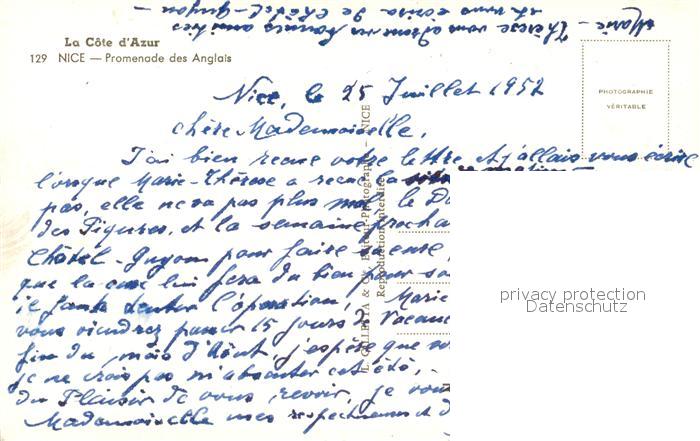 Marie-Thérèse vous adresse ses bonnes amitiés
et vous écrira de Châtel-Guyon -
La Côte d'Azur
129 NICE — Promenade des Anglais
PHOTOGRAPHIE
VÉRITABLE
Nice, le 25 Juillet 1952
Chère Mademoiselle,
J'ai bien reçue votre lettre et j'allais vous écrire
lorsque Marie-Thérèse a reçue la
pas, elle ne va pas plus mal le
des Piqures, et la semaine procha
Châtel-Guyon pour faire sa cure,
que la cure lui fera du bien pour
il faut tenter l'opération, Marie
vous viendrez passer 15 jours de Vacanc
fin du mois d'Août, j'espère que
je ne crois pas m'absenter cet été,
du Plaisir de vous revoir, je vou
Mademoiselle mes respectueuses
GILLETTA & Cie, Editeur-Photographe - NICE
Reproduction interdite
privacy protection
Datenschutz